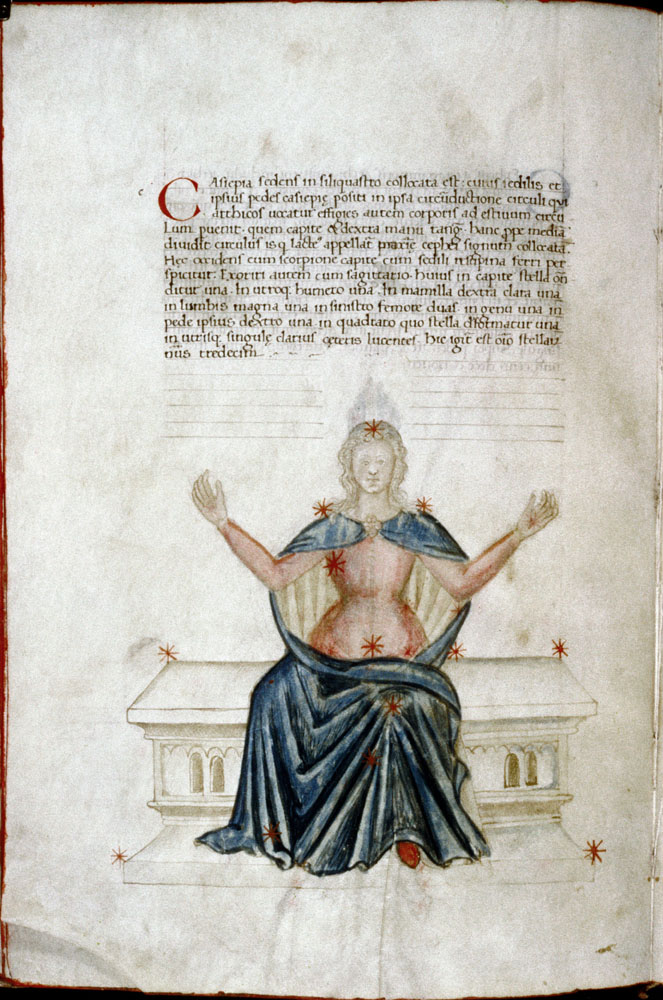 CAsiepia sedens in siliquastro collocata est: cuius sedilis et
ipsius pedes casiepię positi in ipsa circūductione circuli qui
arthicos uocatur effigies autem corporis ad estiuum circu
lum puenit. quem capite & dextra manu tang. hanc ppe mediā
diuidit circulus is q lacte appellat cephei signum collocata.
Hęc occidens cum scorpione capite cum sedili resupina ferri per
spicitur: Exoriri autem cum sagittario. huius in capite stella on
ditur una. In utroq. humero una. In mamilla dextra clara una
in lumbis magna una in sinistro femore duas. in genu una in
pede ipsius dextro una in quadrato quo stella dformatur una
in utrisq. singulę clarius cęteris lucentes. hic igit est oīo stellar
nūs tredecim